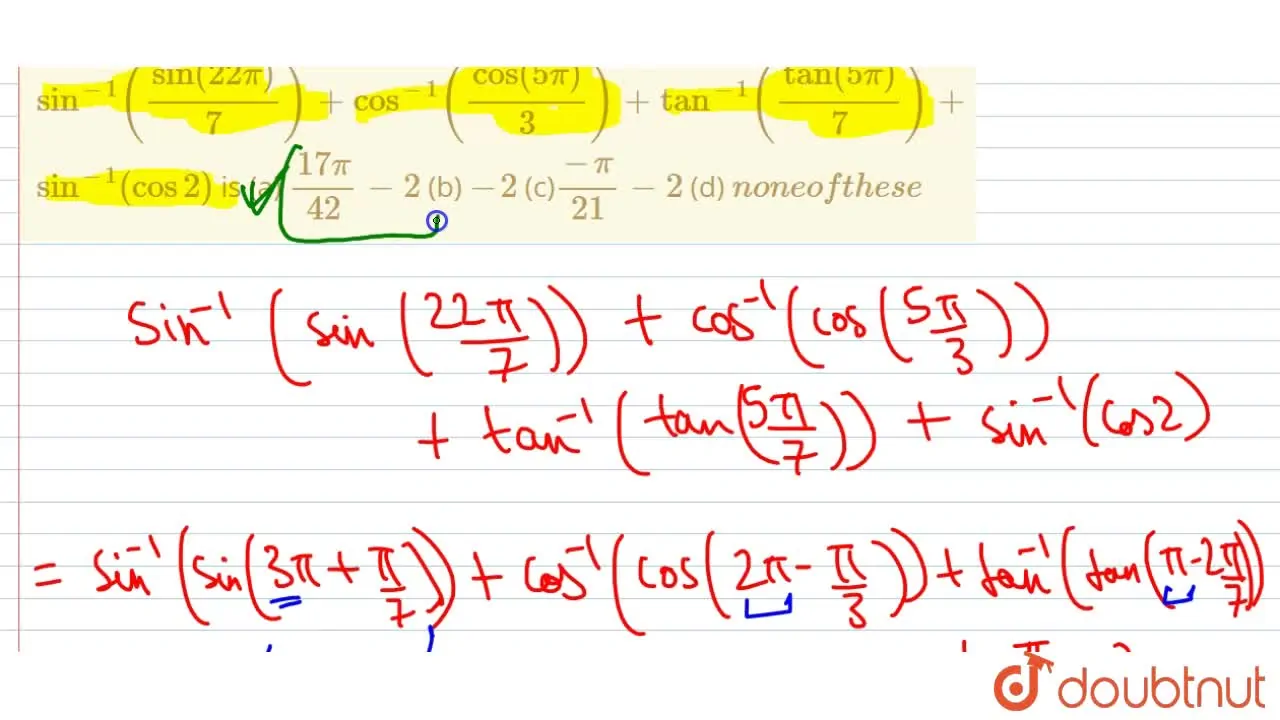 sin⁻¹(sin(22π)/7) + cos⁻¹(cos(5π)/3) + tan⁻¹(tan(5π)/7) +
sin⁻¹(cos 2) is (a) 17π/42 − 2 (b) −2 (c) −π/21 − 2 (d) noneofthese
Sin⁻¹(sin(22π/7)) + cos⁻¹(cos(5π/3))
+ tan⁻¹(tan(5π/7)) + sin⁻¹(cos2)
= sin⁻¹(sin(3π + π/7)) + cos⁻¹(cos(2π − π/3)) + tan⁻¹(tan(π − 2π/7))
doubtnut